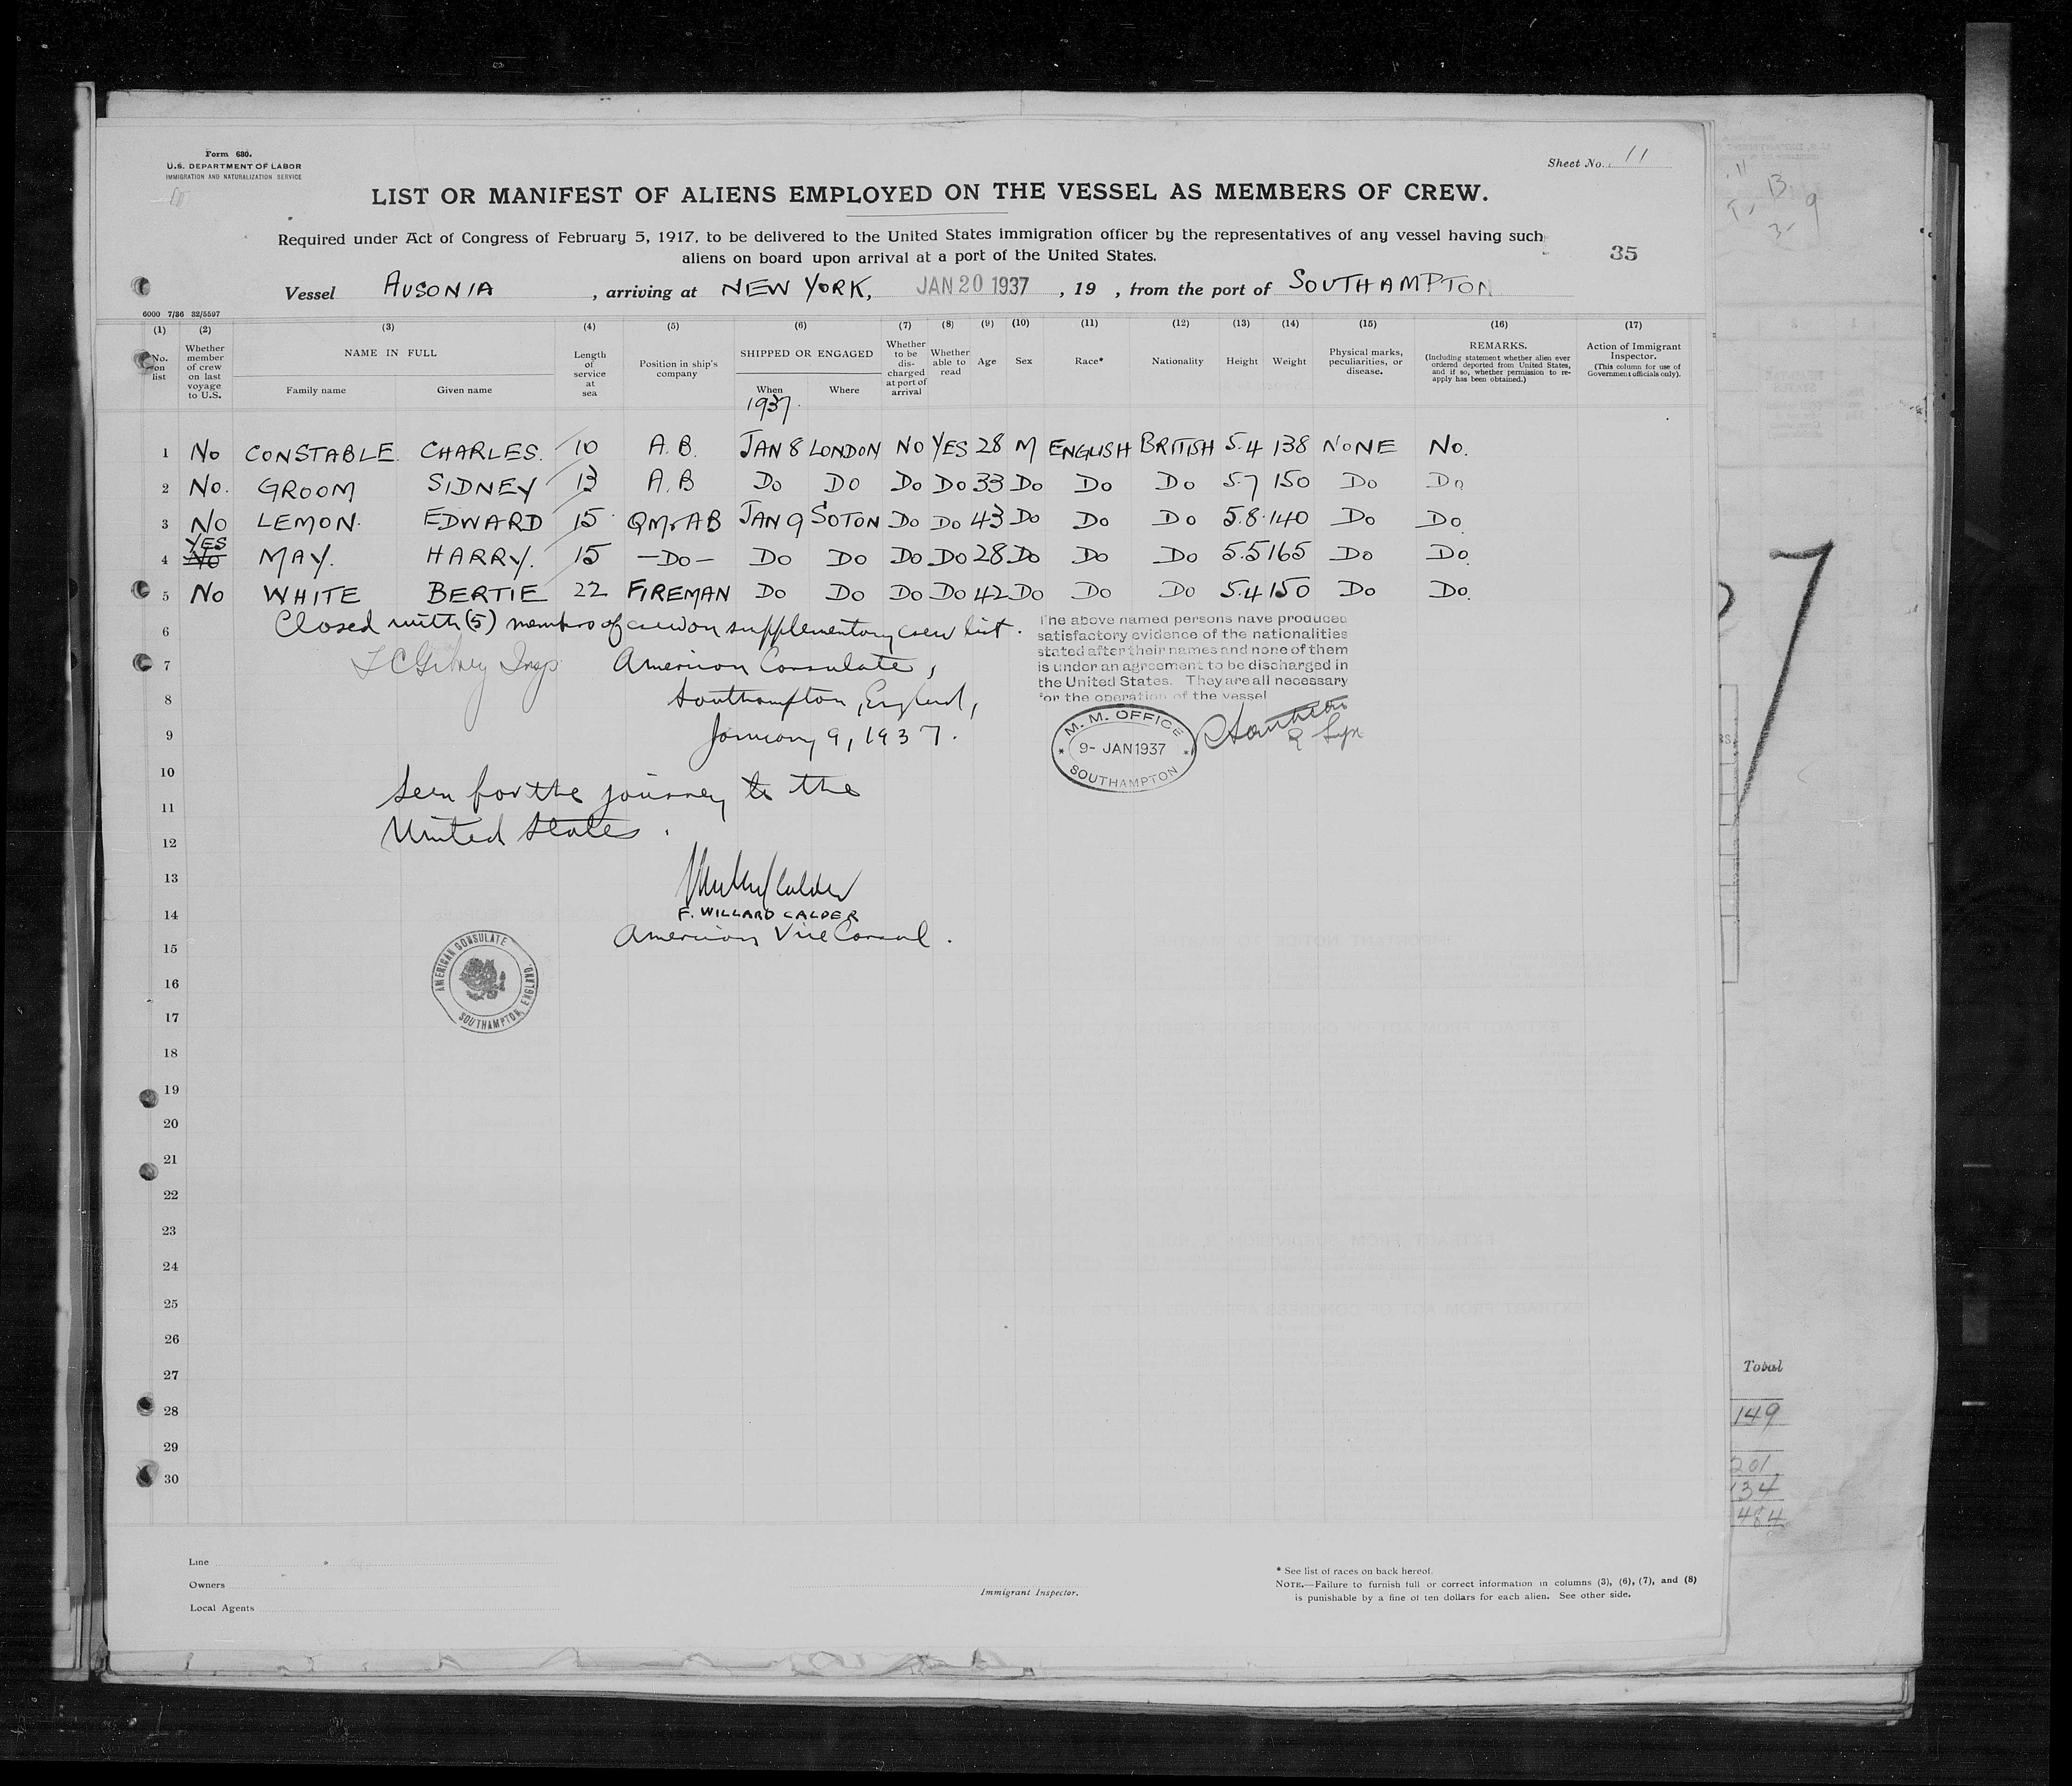 Form 680.
U.S. DEPARTMENT OF LABOR
IMMIGRATION AND NATURALIZATION SERVICE
Sheet No. 11
LIST OR MANIFEST OF ALIENS EMPLOYED ON THE VESSEL AS MEMBERS OF CREW.
Required under Act of Congress of February 5, 1917, to be delivered to the United States immigration officer by the representatives of any vessel having such
aliens on board upon arrival at a port of the United States.
35
Vessel AUSONIA, arriving at NEW YORK, JAN 20 1937, 19 , from the port of SOUTHAMPTON
6000 7/36 32/5597
(1) (2) (3) (4) (5) (6) (7) (8) (9) (10) (11) (12) (13) (14) (15) (16) (17)
No. on list
Whether member of crew on last voyage to U.S.
NAME IN FULL
Family name
Given name
Length of service at sea
Position in ship's company
SHIPPED OR ENGAGED
When
Where
1937.
Whether to be discharged at port of arrival
Whether able to read
Age
Sex
Race*
Nationality
Height
Weight
Physical marks, peculiarities, or disease.
REMARKS.
(Including statement whether alien ever ordered deported from United States, and if so, whether permission to re-apply has been obtained.)
Action of Immigrant Inspector.
(This column for use of Government officials only).
1 No CONSTABLE. CHARLES. 10 A.B. JAN 8 LONDON NO YES 28 M ENGLISH BRITISH 5.4 138 NONE No.
2 No. GROOM SIDNEY 13 A.B Do Do Do Do 33 Do Do Do 5.7 150 Do Do
3 No LEMON. EDWARD 15 QMrAB JAN 9 SOTON Do Do 43 Do Do Do 5.8. 140 Do Do.
4 YES No MAY. HARRY. 15 —Do— Do Do Do Do 28 Do Do Do 5.5 165 Do Do.
5 No WHITE BERTIE 22 FIREMAN Do Do Do Do 42 Do Do Do 5.4 150 Do Do.
6 Closed with (5) members of crew on supplementary crew list.
The above named persons have produced
satisfactory evidence of the nationalities
stated after their names and none of them
is under an agreement to be discharged in
the United States. They are all necessary
for the operation of the vessel
7 Insp. American Consulate,
8 Southampton, England,
9 January 9, 1937.
M. M. OFFICE
9- JAN 1937
SOUTHAMPTON
10
Seen for the journey to the
11
United States.
12
13
14 F. WILLARD CALDER
American Vice Consul.
15
AMERICAN CONSULATE
SOUTHAMPTON, ENGLAND.
16
17
18
19
20
21
22
23
24
25
26
27
28
29
30
Total
149
201
134
484
7
Line
Owners
Local Agents
Immigrant Inspector.
* See list of races on back hereof.
NOTE.—Failure to furnish full or correct information in columns (3), (6), (7), and (8)
is punishable by a fine of ten dollars for each alien. See other side.